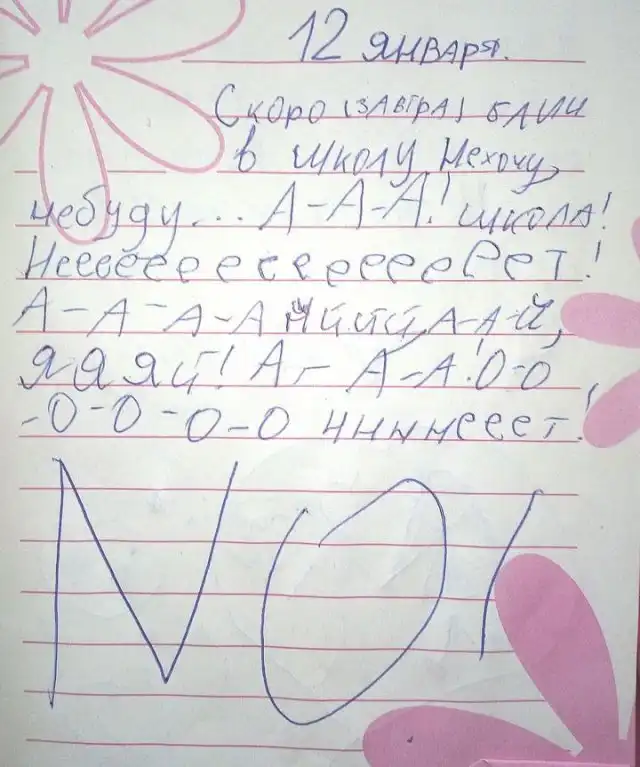 12 января.
Скоро (завтра) блин
в школу Нехочу,
небуду... А-А-А! школа!
Неееееееееееееет!
А-А-А-А ййййй А-А-Й,
Я Я Яй! А- А-А!О-О
-О-О-О-О ннннееет!
NO!